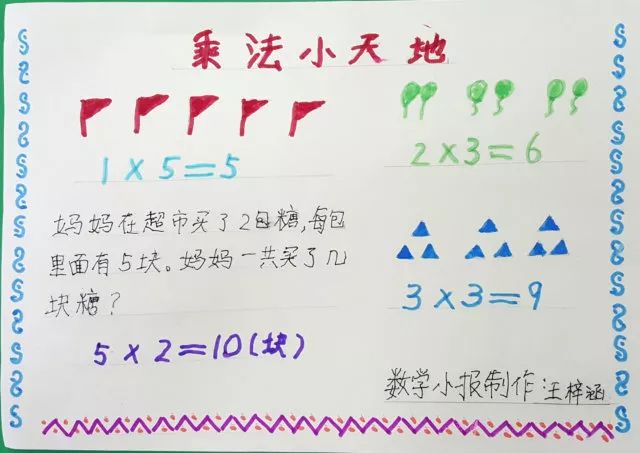 乘法小天地
1×5=5
2×3=6
妈妈在超市买了2包糖,每包
里面有5块。妈妈一共买了几
块糖?
5×2=10(块)
3×3=9
数学小报制作:王梓涵